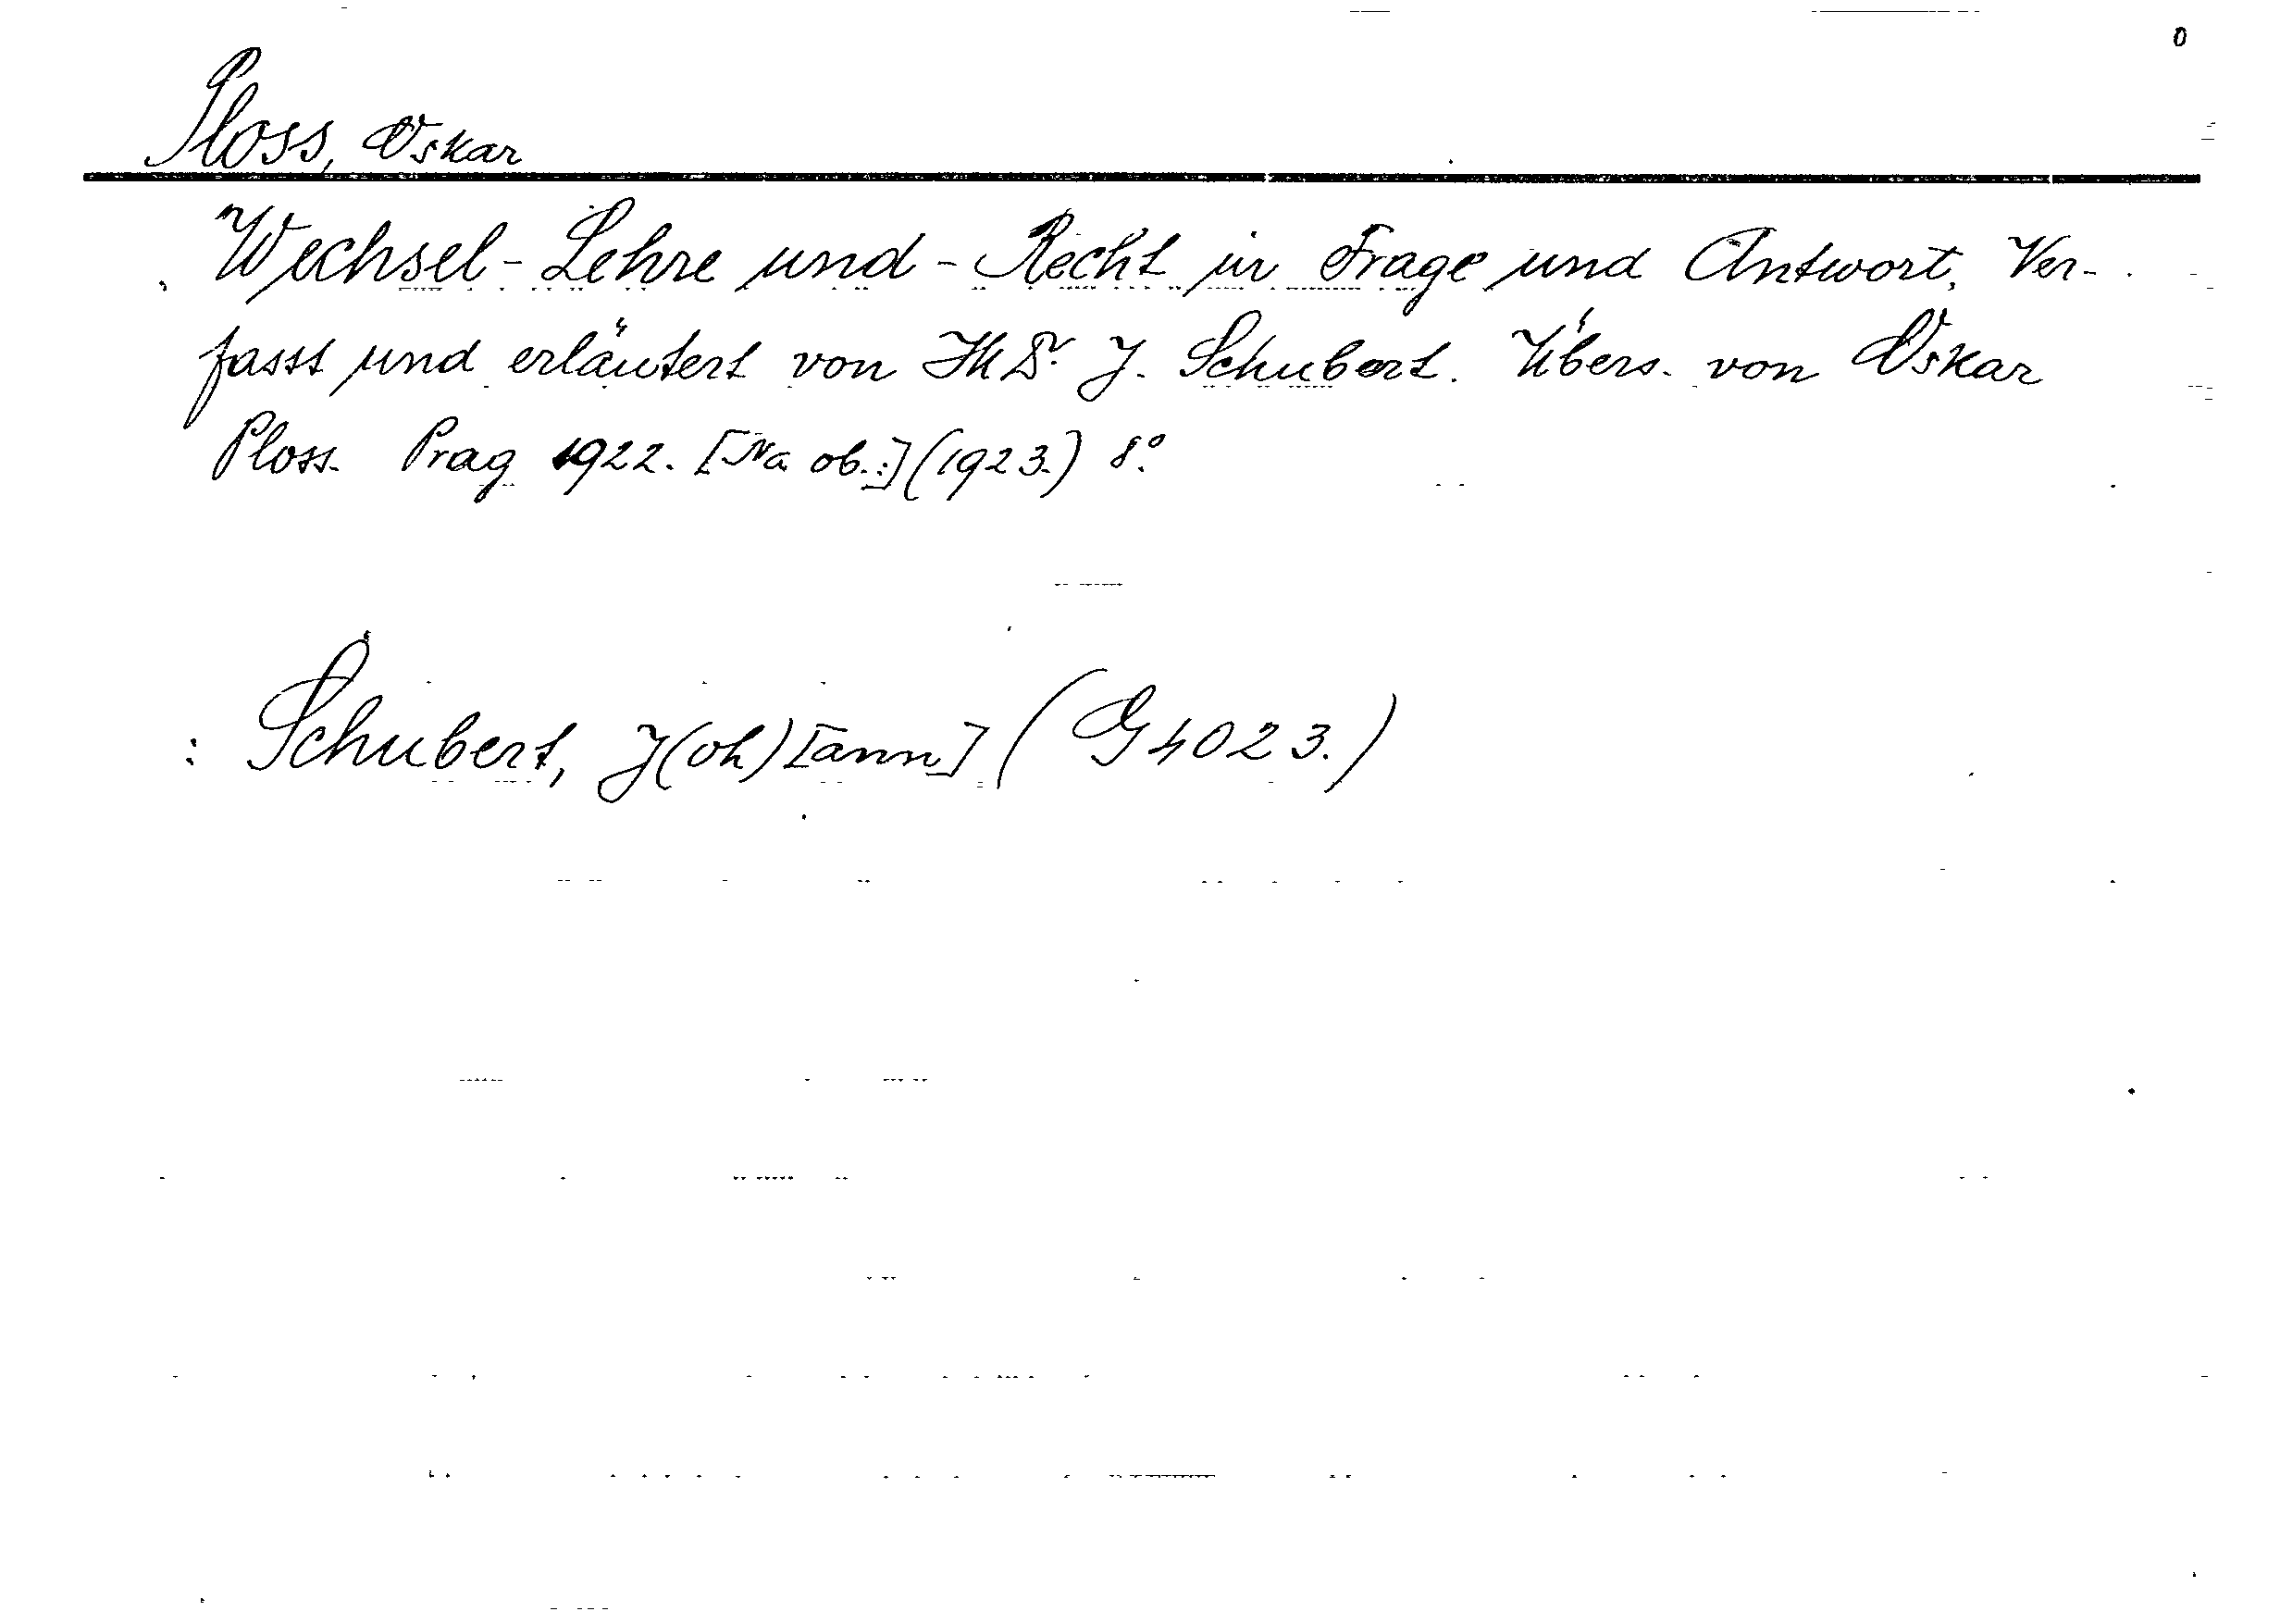 0
Ploss, Oskar
Wechsel-Lehre und -Recht in Frage und Antwort, Ver-
fasst und erläutert von Dr. J. Schubert. Übers. von Oskar
Ploss. Prag 1922. [Na ob.:] (1923.) 8°.
: Schubert, J(oh)[ann] (G 4023.)